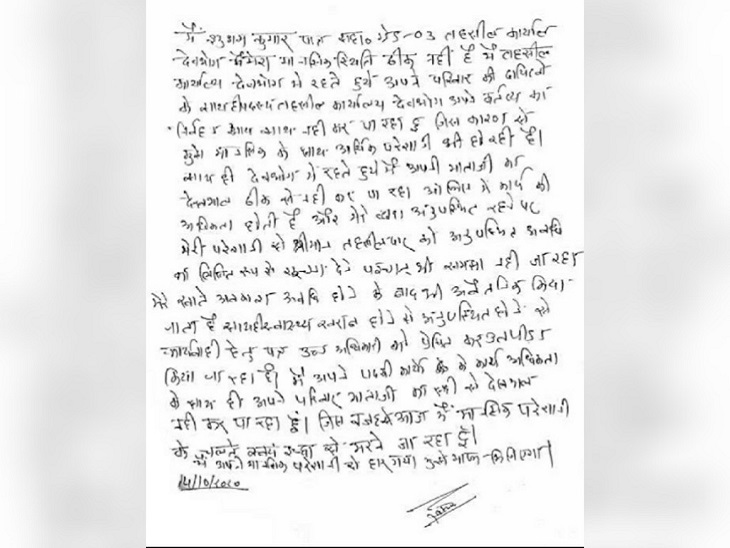 मैं शुभम कुमार पात्र सहा० ग्रेड-03 तहसील कार्यालय
देवभोग में मेरा मानसिक स्थिति ठीक नही है मैं तहसील
कार्यालय देवभोग में रहते हुये अपने परिवार की दायित्वों
के साथ ही तहसील कार्यालय देवभोग अपने कर्तव्य का
निर्वहन साथ नही कर पा रहा हु जिस कारण से
मुझे मानसिक के साथ आर्थिक परेशानी भी हो रही है।
साथ ही देवभोग में रहते हुये मैं अपनी माताजी का
देखभाल ठीक से नही कर पा रहा ऑफिस में कार्य की
अधिकता होती है और मेरे द्वारा अनुपस्थित रहने पर
मेरी परेशानी से श्रीमान तहसीलदार को अनुपस्थित अवधि
का लिखित रूप से सूचना देने पश्चात भी समझा नही जा रहा
मेरे खाते अवकाश अवधि होने के बाद भी अवैतनिक किया
जाता है साथ ही स्वास्थ्य खराब होने से अनुपस्थित होने से
कार्यवाही हेतु पत्र उच्च अधिकारी को प्रेषित कर उत्पीड़न
किया जा रहा है। मैं अपने पदकी कार्य के कार्य अधिकता
के साथ ही अपने परिवार माताजी का सही से देखभाल
नही कर पा रहा हूं। जिस वजहसे आज मैं मानसिक परेशानी
के चलते स्वयं इच्छा से मरने जा रहा हूँ।
मैं अपनी मानसिक परेशानी से हार गया मुझे माफ किजिएगा।
14/10/2020